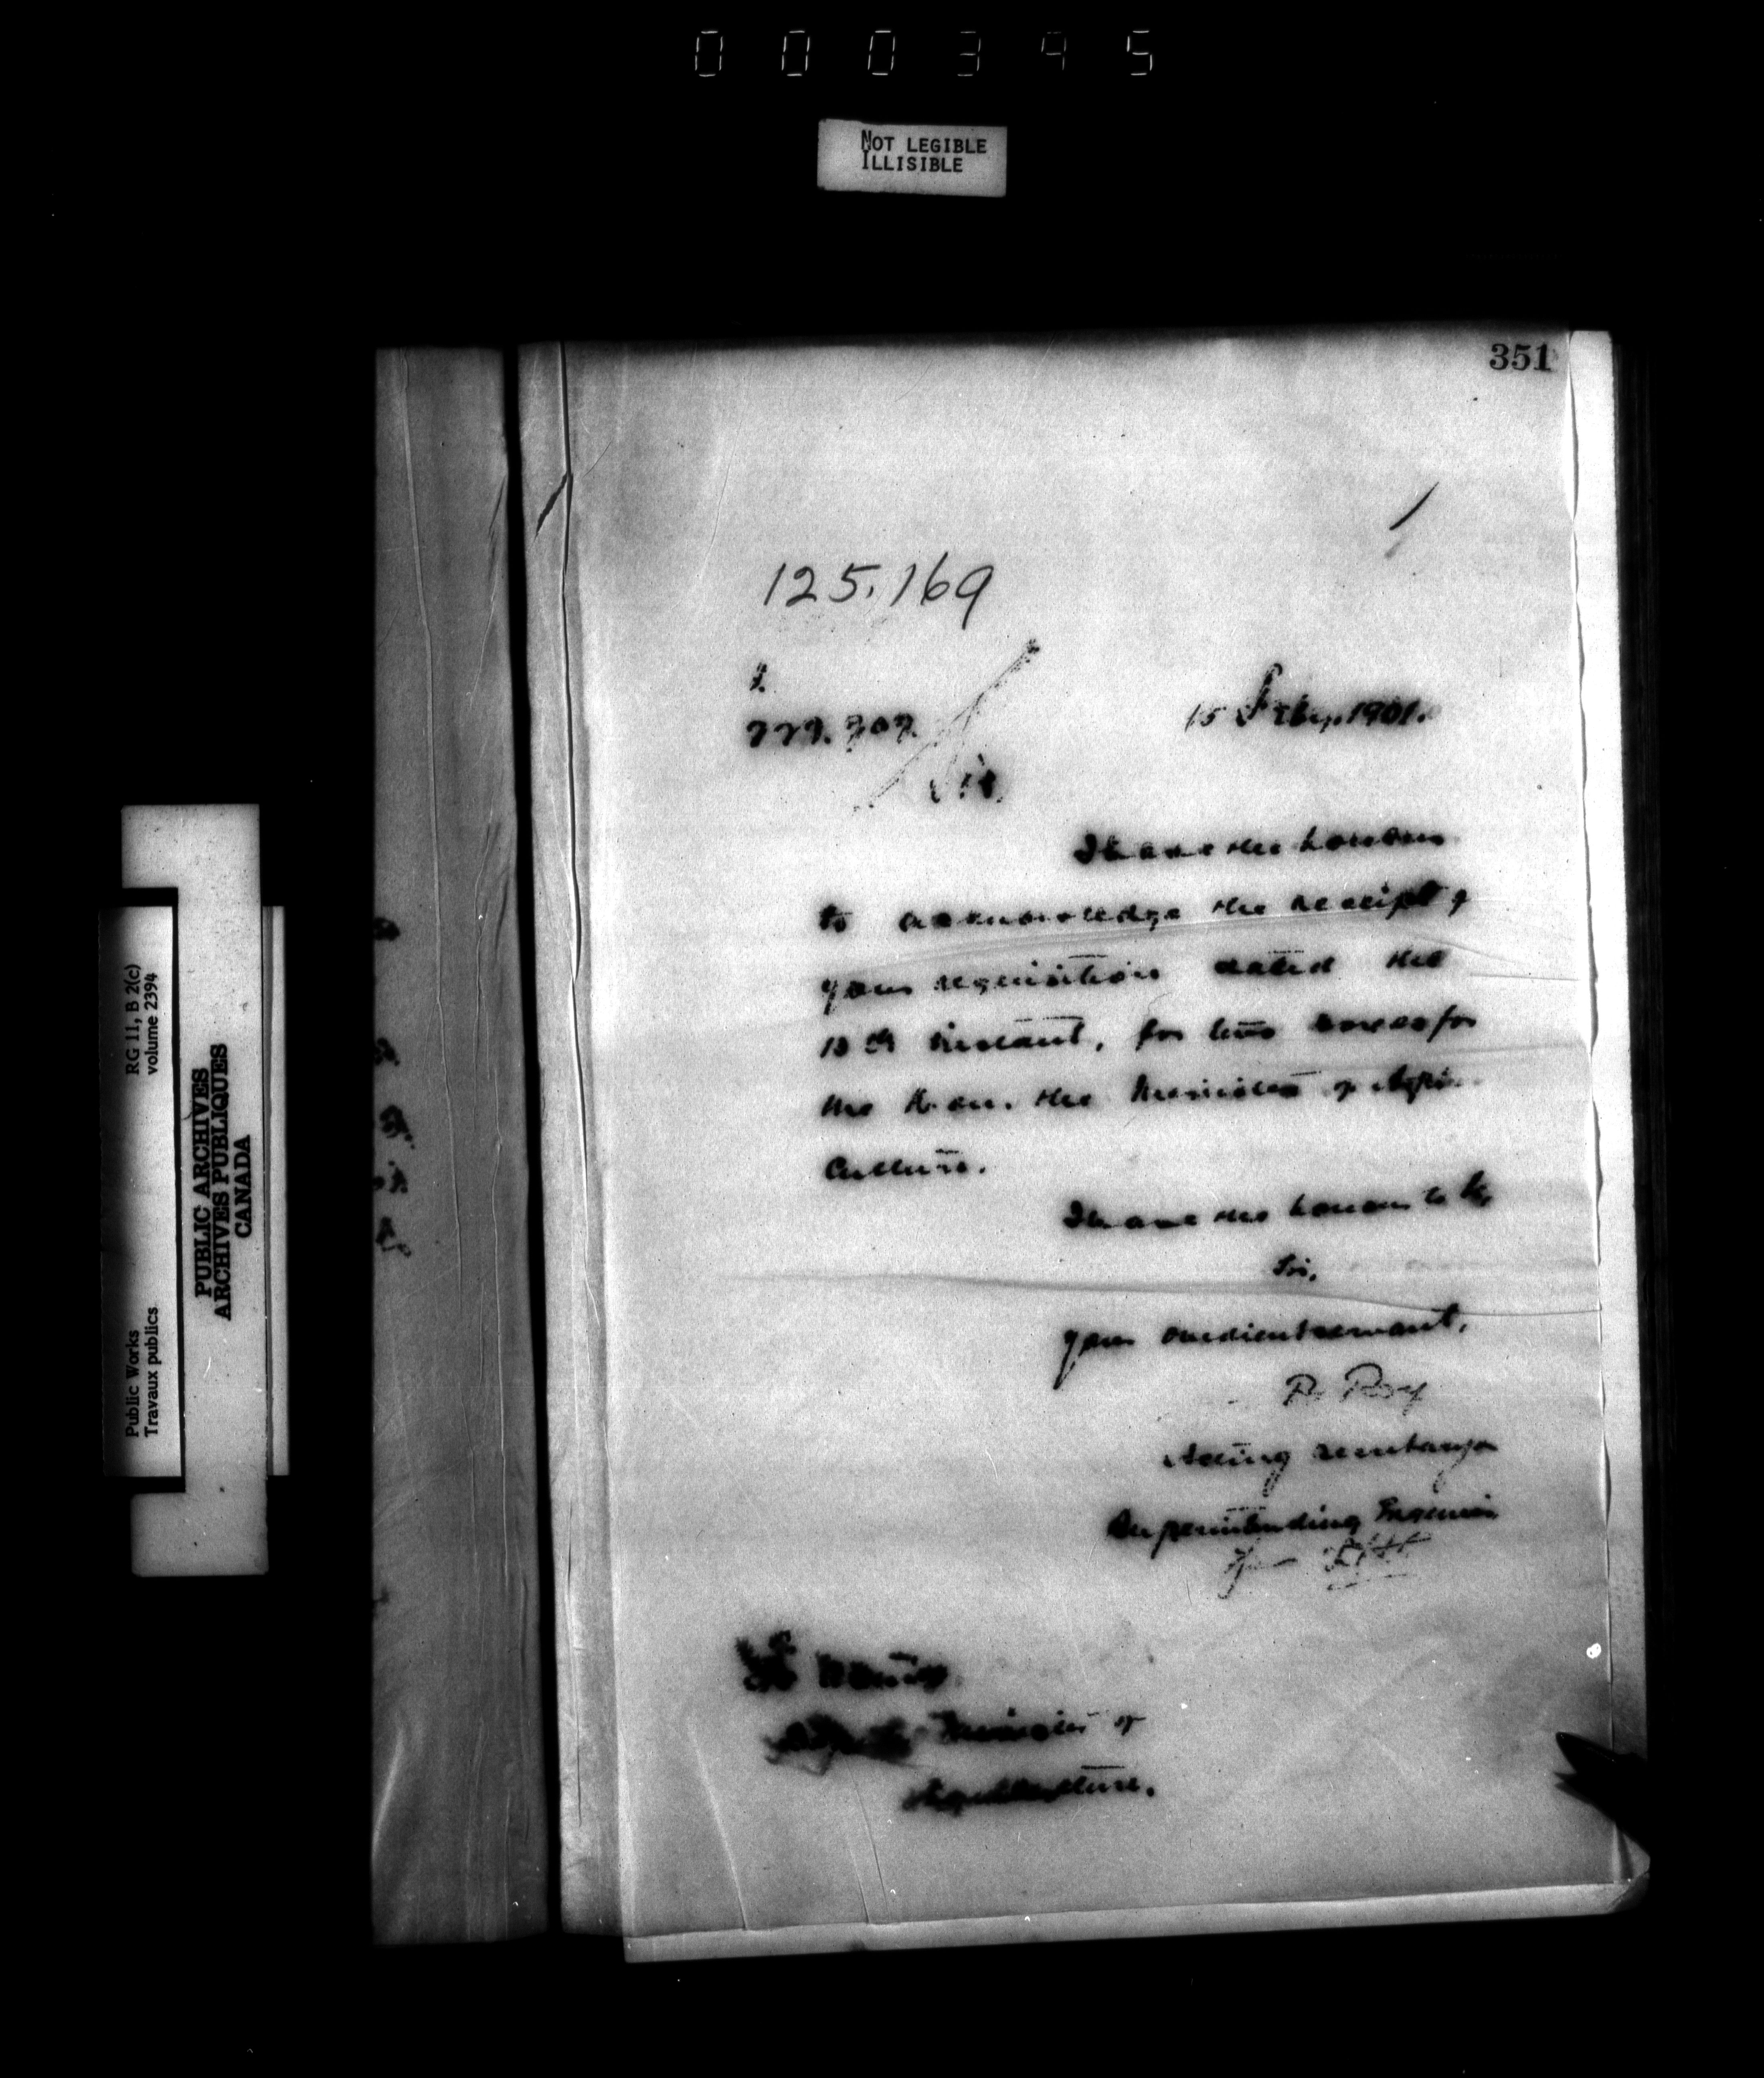 000395
NOT LEGIBLE
ILLISIBLE
351
125.169
15 Feby. 1901.
Sir,
I have the honour
to acknowledge the receipt of
your requisition dated the
13th instant, for two boxes for
the Hon. the Minister of Agri-
culture.
I have the honour to be
Sir,
your obedient servant,
R. Roy
Acting Secretary &
Superintending Engineer
Deputy Minister of
Agriculture.
RG 11, B 2(c)
volume 2394
Public Works
Travaux publics
PUBLIC ARCHIVES
ARCHIVES PUBLIQUES
CANADA